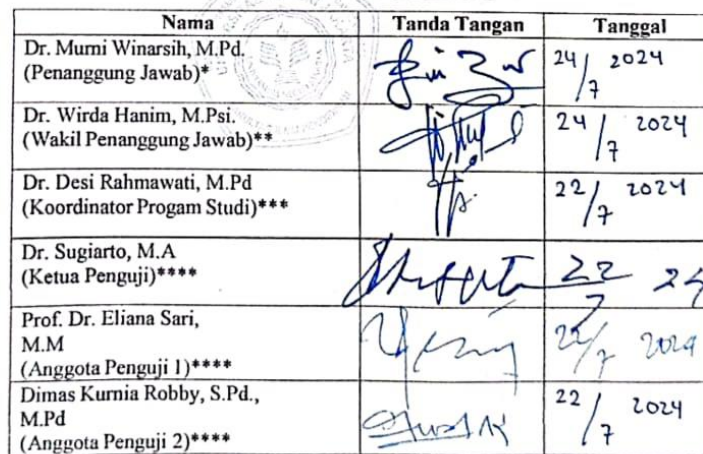 Nama Tanda Tangan Tanggal
Dr. Murni Winarsih, M.Pd.
(Penanggung Jawab)* 24/7 2024
Dr. Wirda Hanim, M.Psi.
(Wakil Penanggung Jawab)** 24/7 2024
Dr. Desi Rahmawati, M.Pd
(Koordinator Progam Studi)*** 22/7 2024
Dr. Sugiarto, M.A
(Ketua Penguji)**** 22/7 24
Prof. Dr. Eliana Sari,
M.M
(Anggota Penguji 1)**** 22/7 2024
Dimas Kurnia Robby, S.Pd.,
M.Pd
(Anggota Penguji 2)**** 22/7 2024